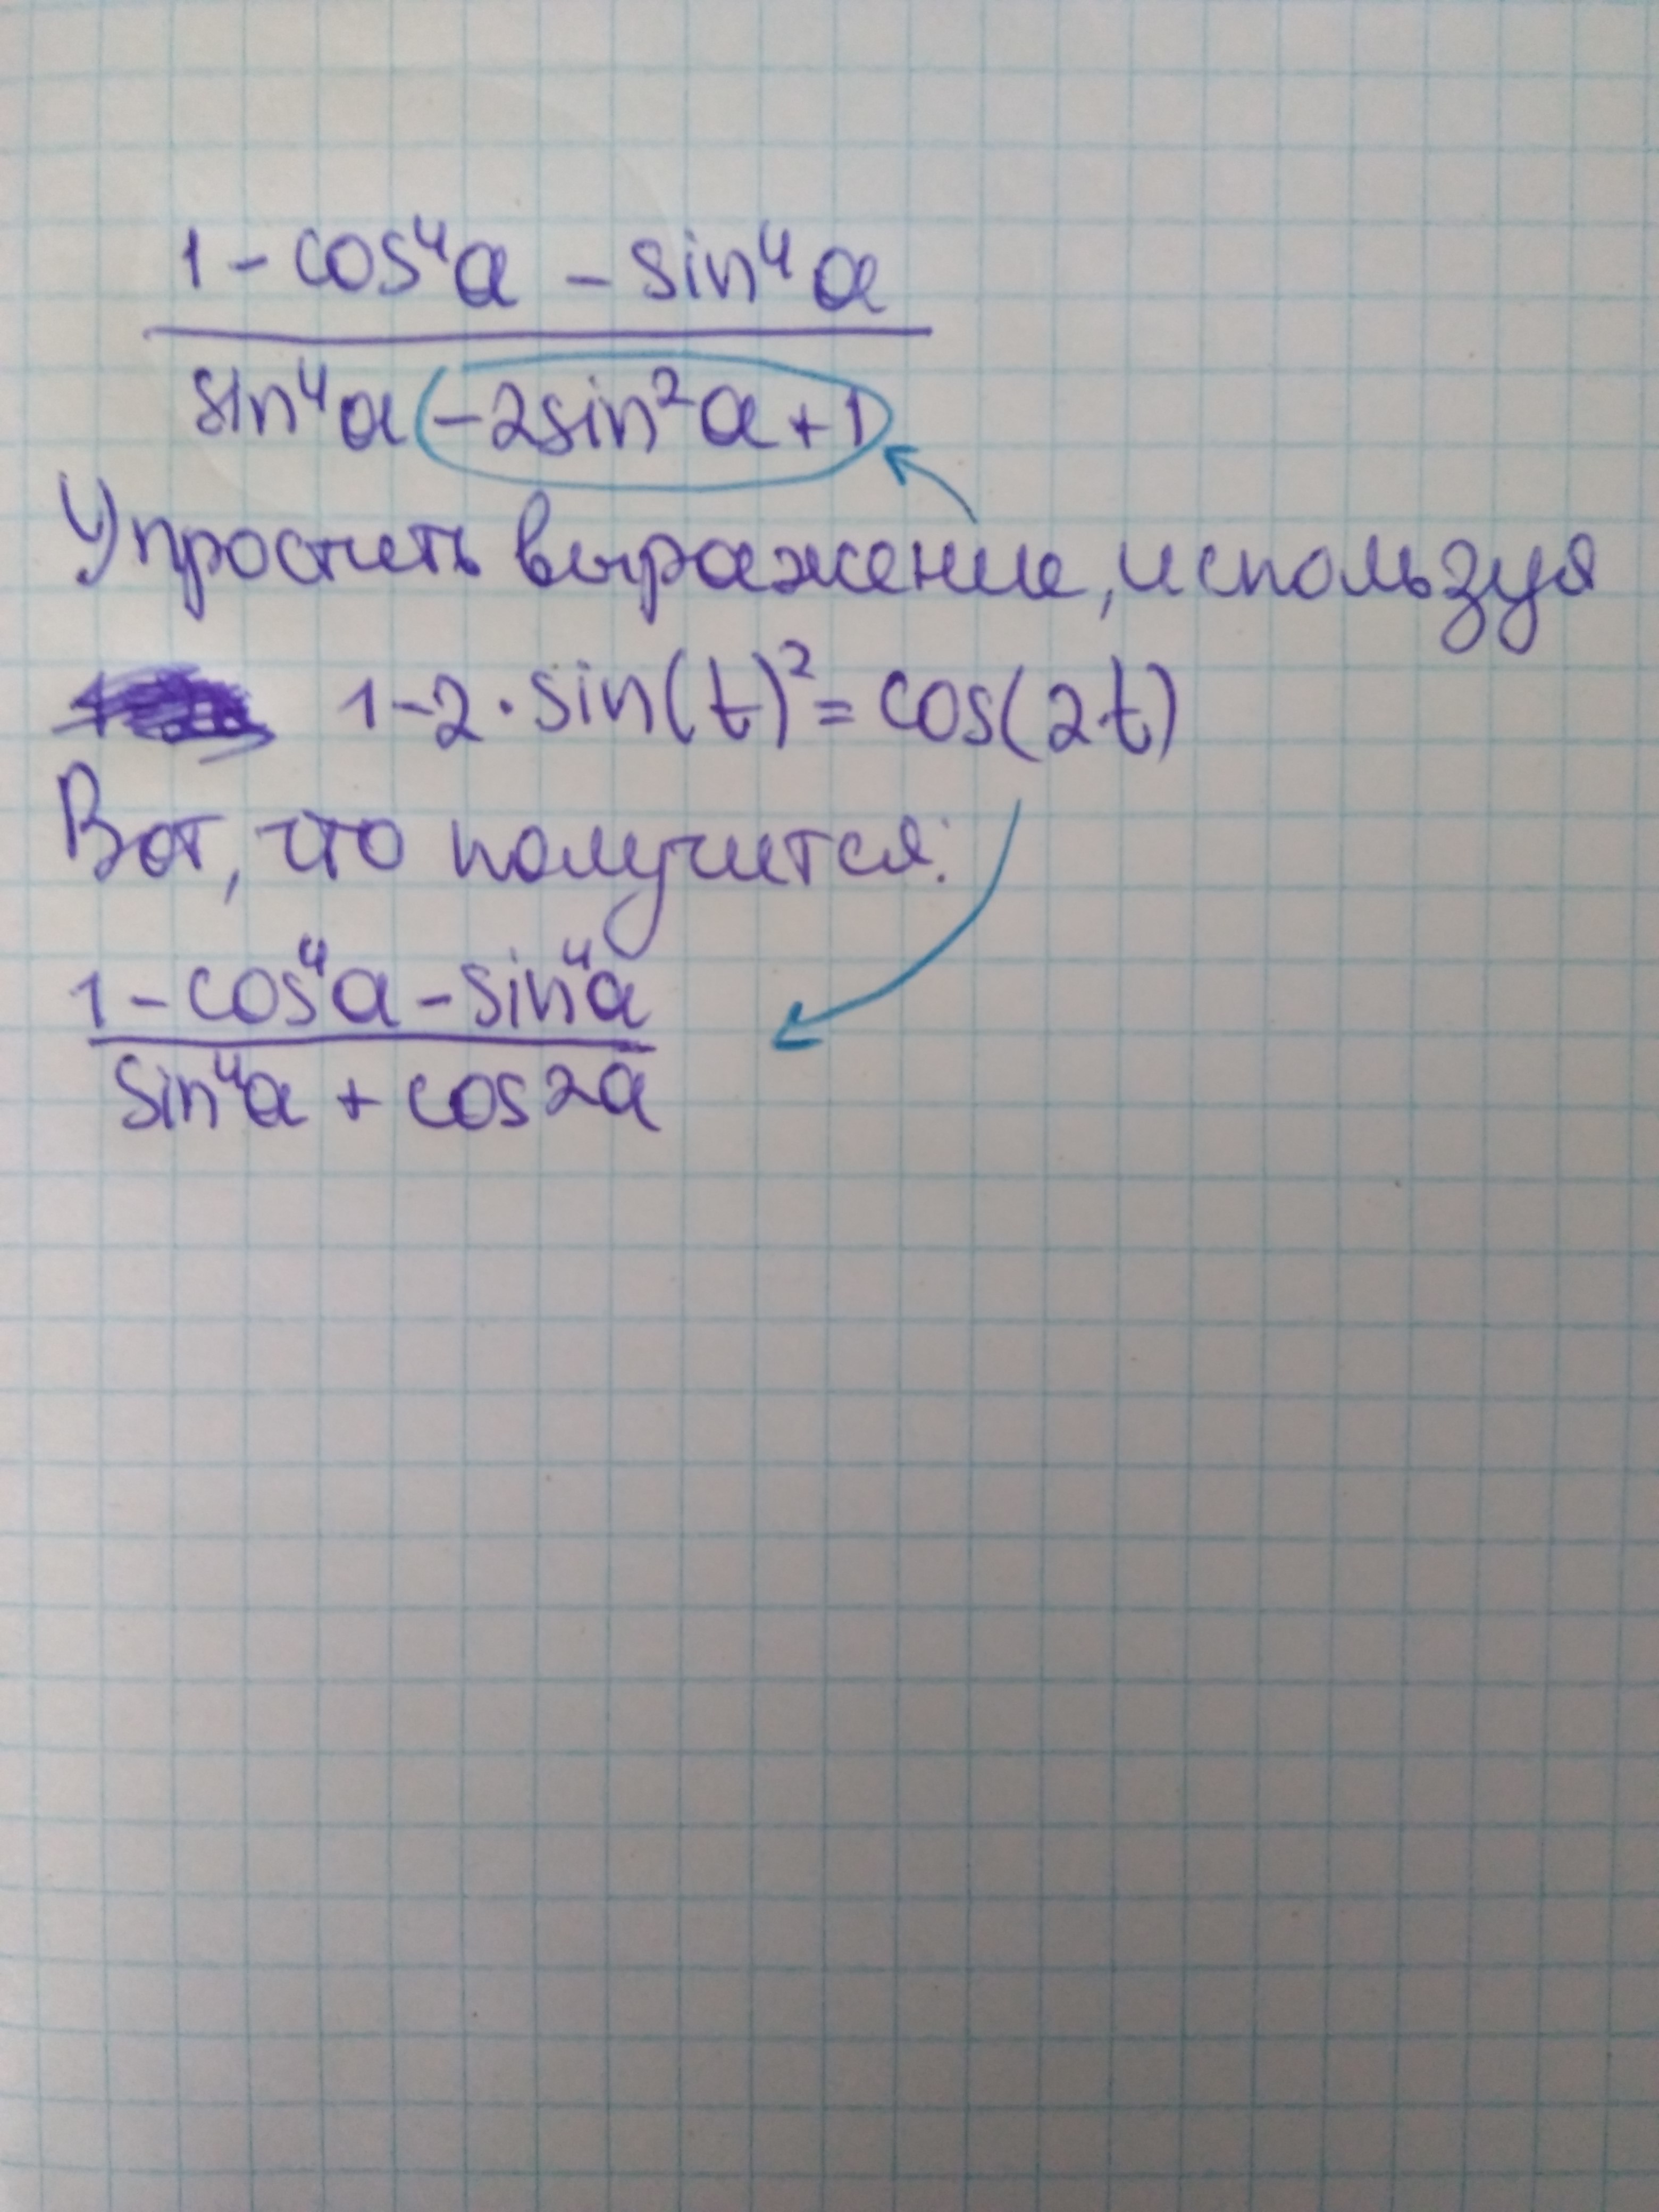 1 - cos⁴a - sin⁴a
sin⁴a - 2sin²a + 1
Упростить выражение, используя
1 - 2 · sin(t)² = cos(2t)
Вот, что получится:
1 - cos⁴a - sin⁴a
sin⁴a + cos2a